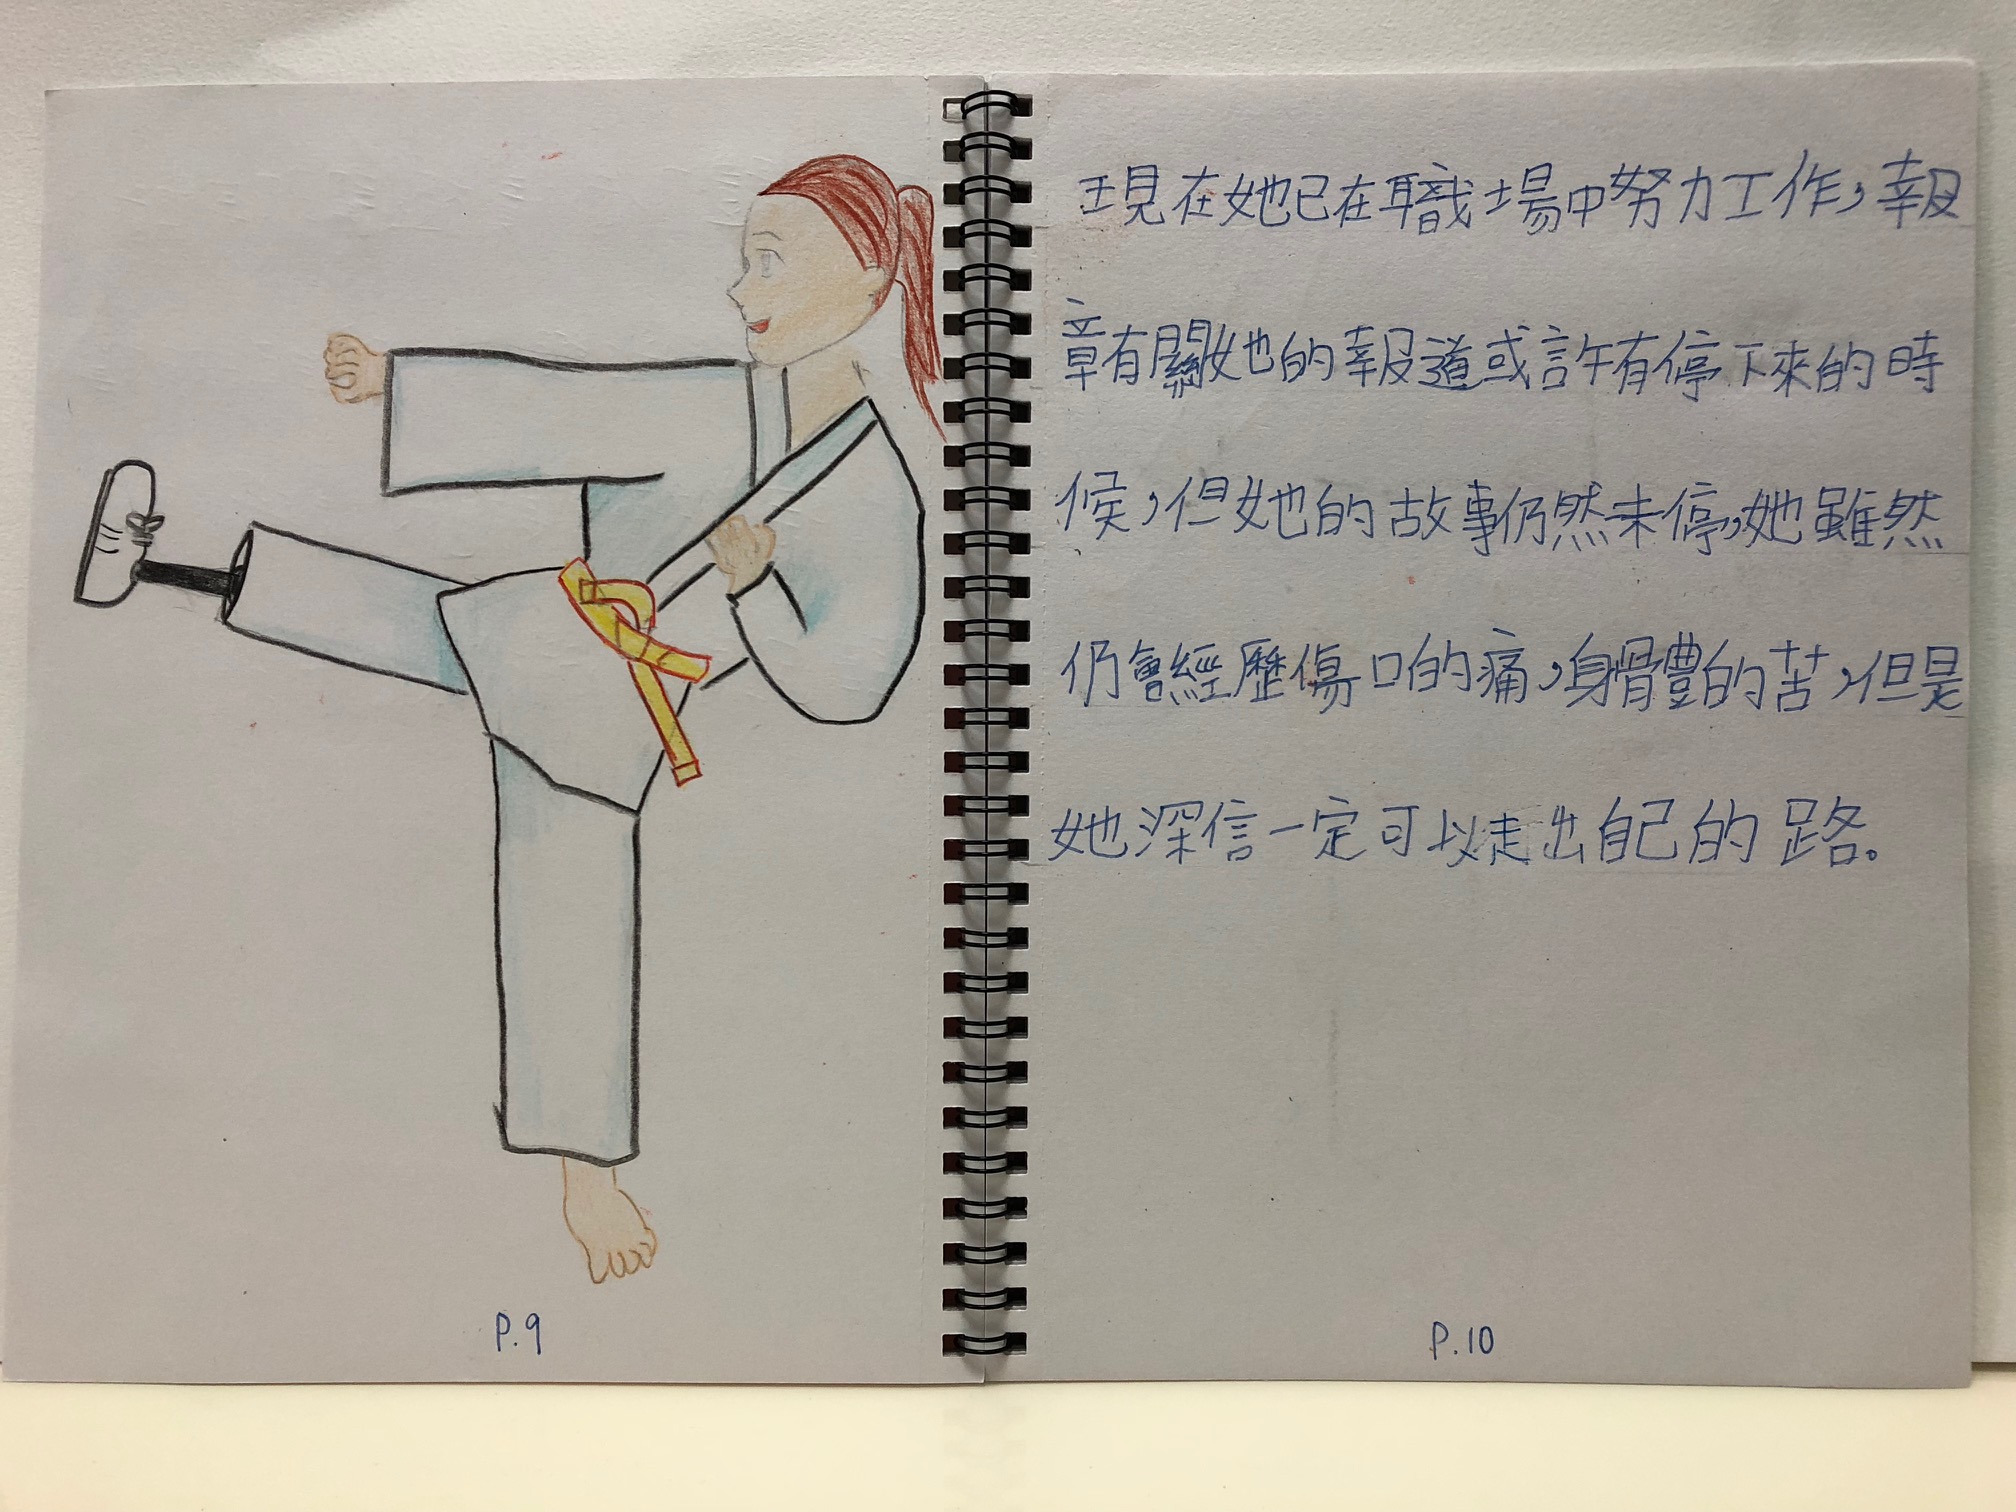 現在她已在職場中努力工作，報
章有關她的報道或許有停下來的時
候，但她的故事仍然未停，她雖然
仍會經歷傷口的痛，身體的苦，但是
她深信一定可以走出自己的路。
P.9
P.10